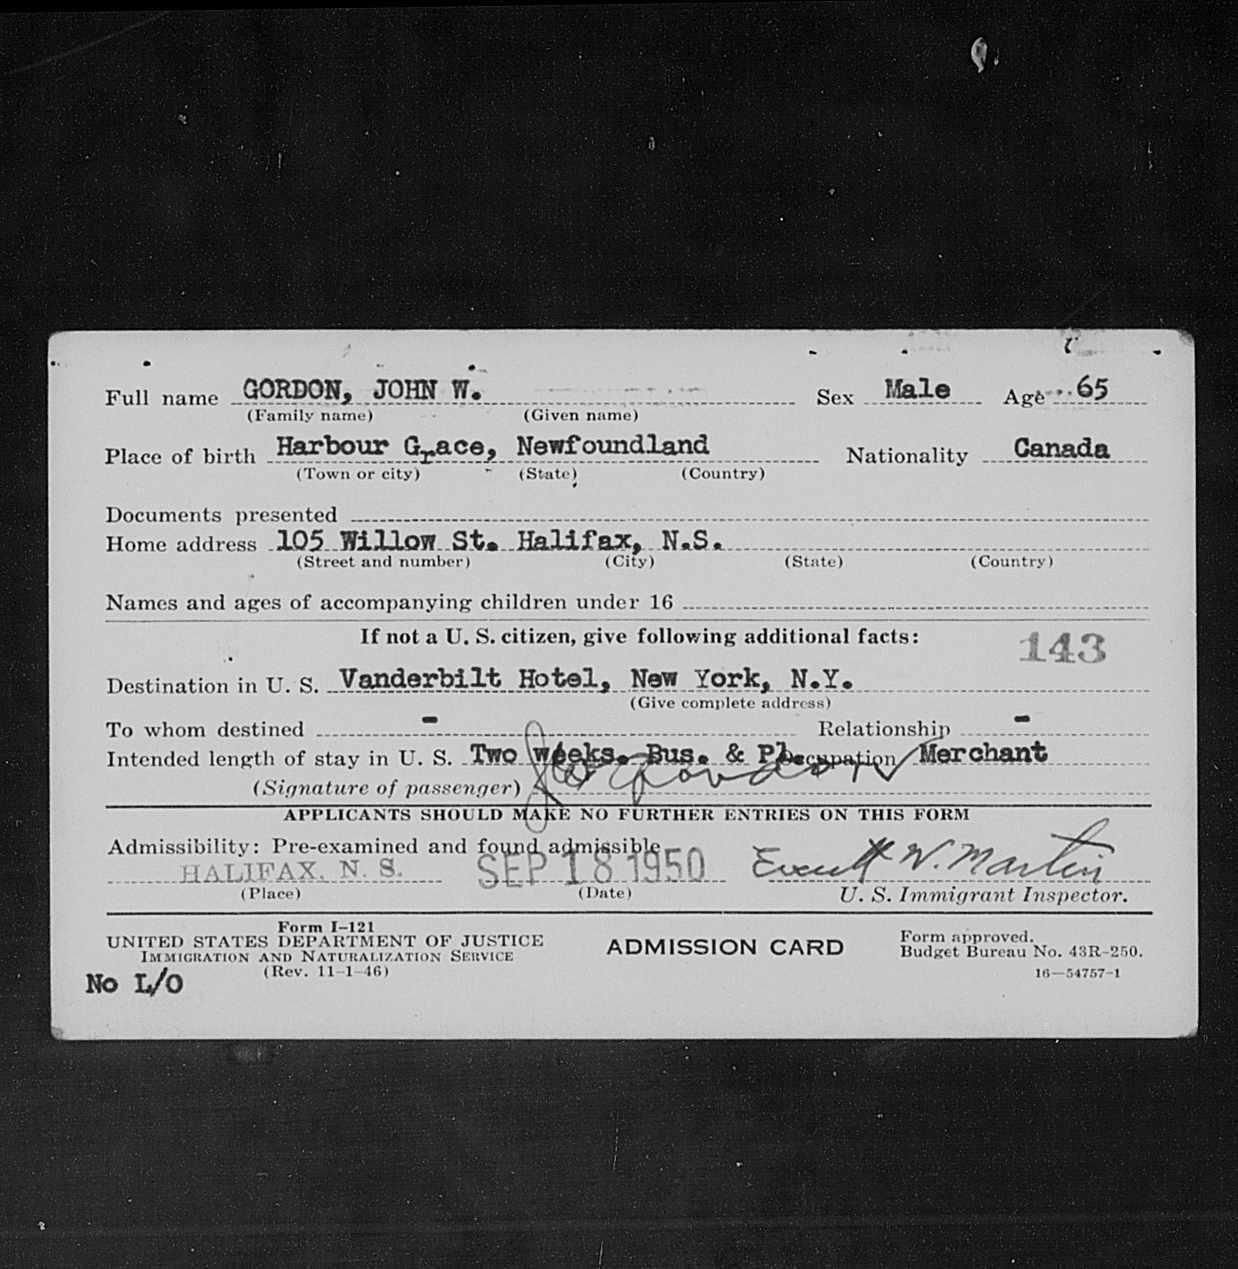 Full name GORDON, JOHN W. Sex Male Age 65
(Family name) (Given name)
Place of birth Harbour Grace, Newfoundland Nationality Canada
(Town or city) (State) (Country)
Documents presented
Home address 105 Willow St. Halifax, N.S.
(Street and number) (City) (State) (Country)
Names and ages of accompanying children under 16
If not a U. S. citizen, give following additional facts:
143
Destination in U. S. Vanderbilt Hotel, New York, N.Y.
(Give complete address)
To whom destined - Relationship -
Intended length of stay in U. S. Two weeks. Bus. & Pl. Occupation Merchant
(Signature of passenger) Jno W Gordon
APPLICANTS SHOULD MAKE NO FURTHER ENTRIES ON THIS FORM
Admissibility: Pre-examined and found admissible
HALIFAX, N. S. SEP 18 1950 Everett W. Martin
(Place) (Date) U. S. Immigrant Inspector.
Form I-121
UNITED STATES DEPARTMENT OF JUSTICE
IMMIGRATION AND NATURALIZATION SERVICE
(Rev. 11-1-46)
ADMISSION CARD
Form approved.
Budget Bureau No. 43R-250.
16—54757-1
No L/O